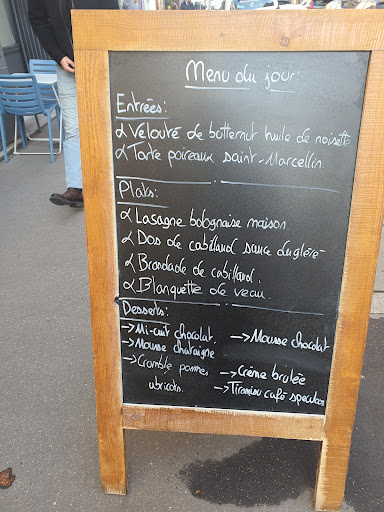 Menu du jour:
Entrées:
α Velouté de butternut huile de noisette
α Tarte poireaux saint-Marcellin.
Plats:
α Lasagne bolognaise maison
α Dos de cabillaud sauce dugléré
α Brandade de cabillaud.
α Blanquette de veau.
Desserts:
→ Mi-cuit chocolat.
→ Mousse chataigne
→ Crumble pommes
abricots.
→ Mousse chocolat
→ Crème brulée
→ Tiramisu café speculoos